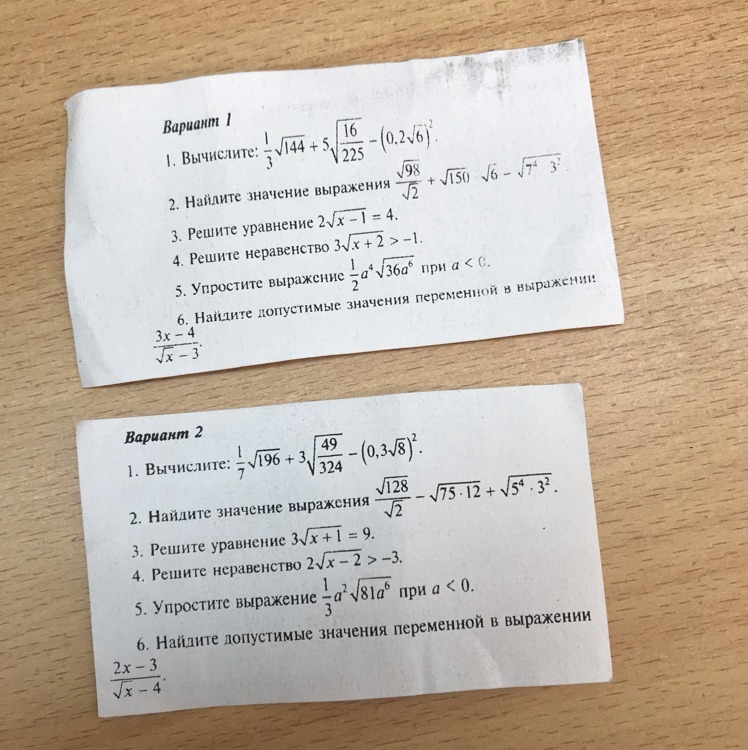 Вариант 1
1. Вычислите: 1/3 √144 + 5√(16/225) − (0,2√6)².
2. Найдите значение выражения √98/√2 + √150 √6 − √(7⁴ 3²)
3. Решите уравнение 2√(x − 1) = 4.
4. Решите неравенство 3√(x + 2) > −1.
5. Упростите выражение 1/2 a⁴√(36a⁶) при a < 0.
6. Найдите допустимые значения переменной в выражении
(3x − 4)/(√x − 3).
Вариант 2
1. Вычислите: 1/7 √196 + 3√(49/324) − (0,3√8)².
2. Найдите значение выражения √128/√2 − √(75 · 12) + √(5⁴ · 3²).
3. Решите уравнение 3√(x + 1) = 9.
4. Решите неравенство 2√(x − 2) > −3.
5. Упростите выражение 1/3 a²√(81a⁶) при a < 0.
6. Найдите допустимые значения переменной в выражении
(2x − 3)/(√x − 4).